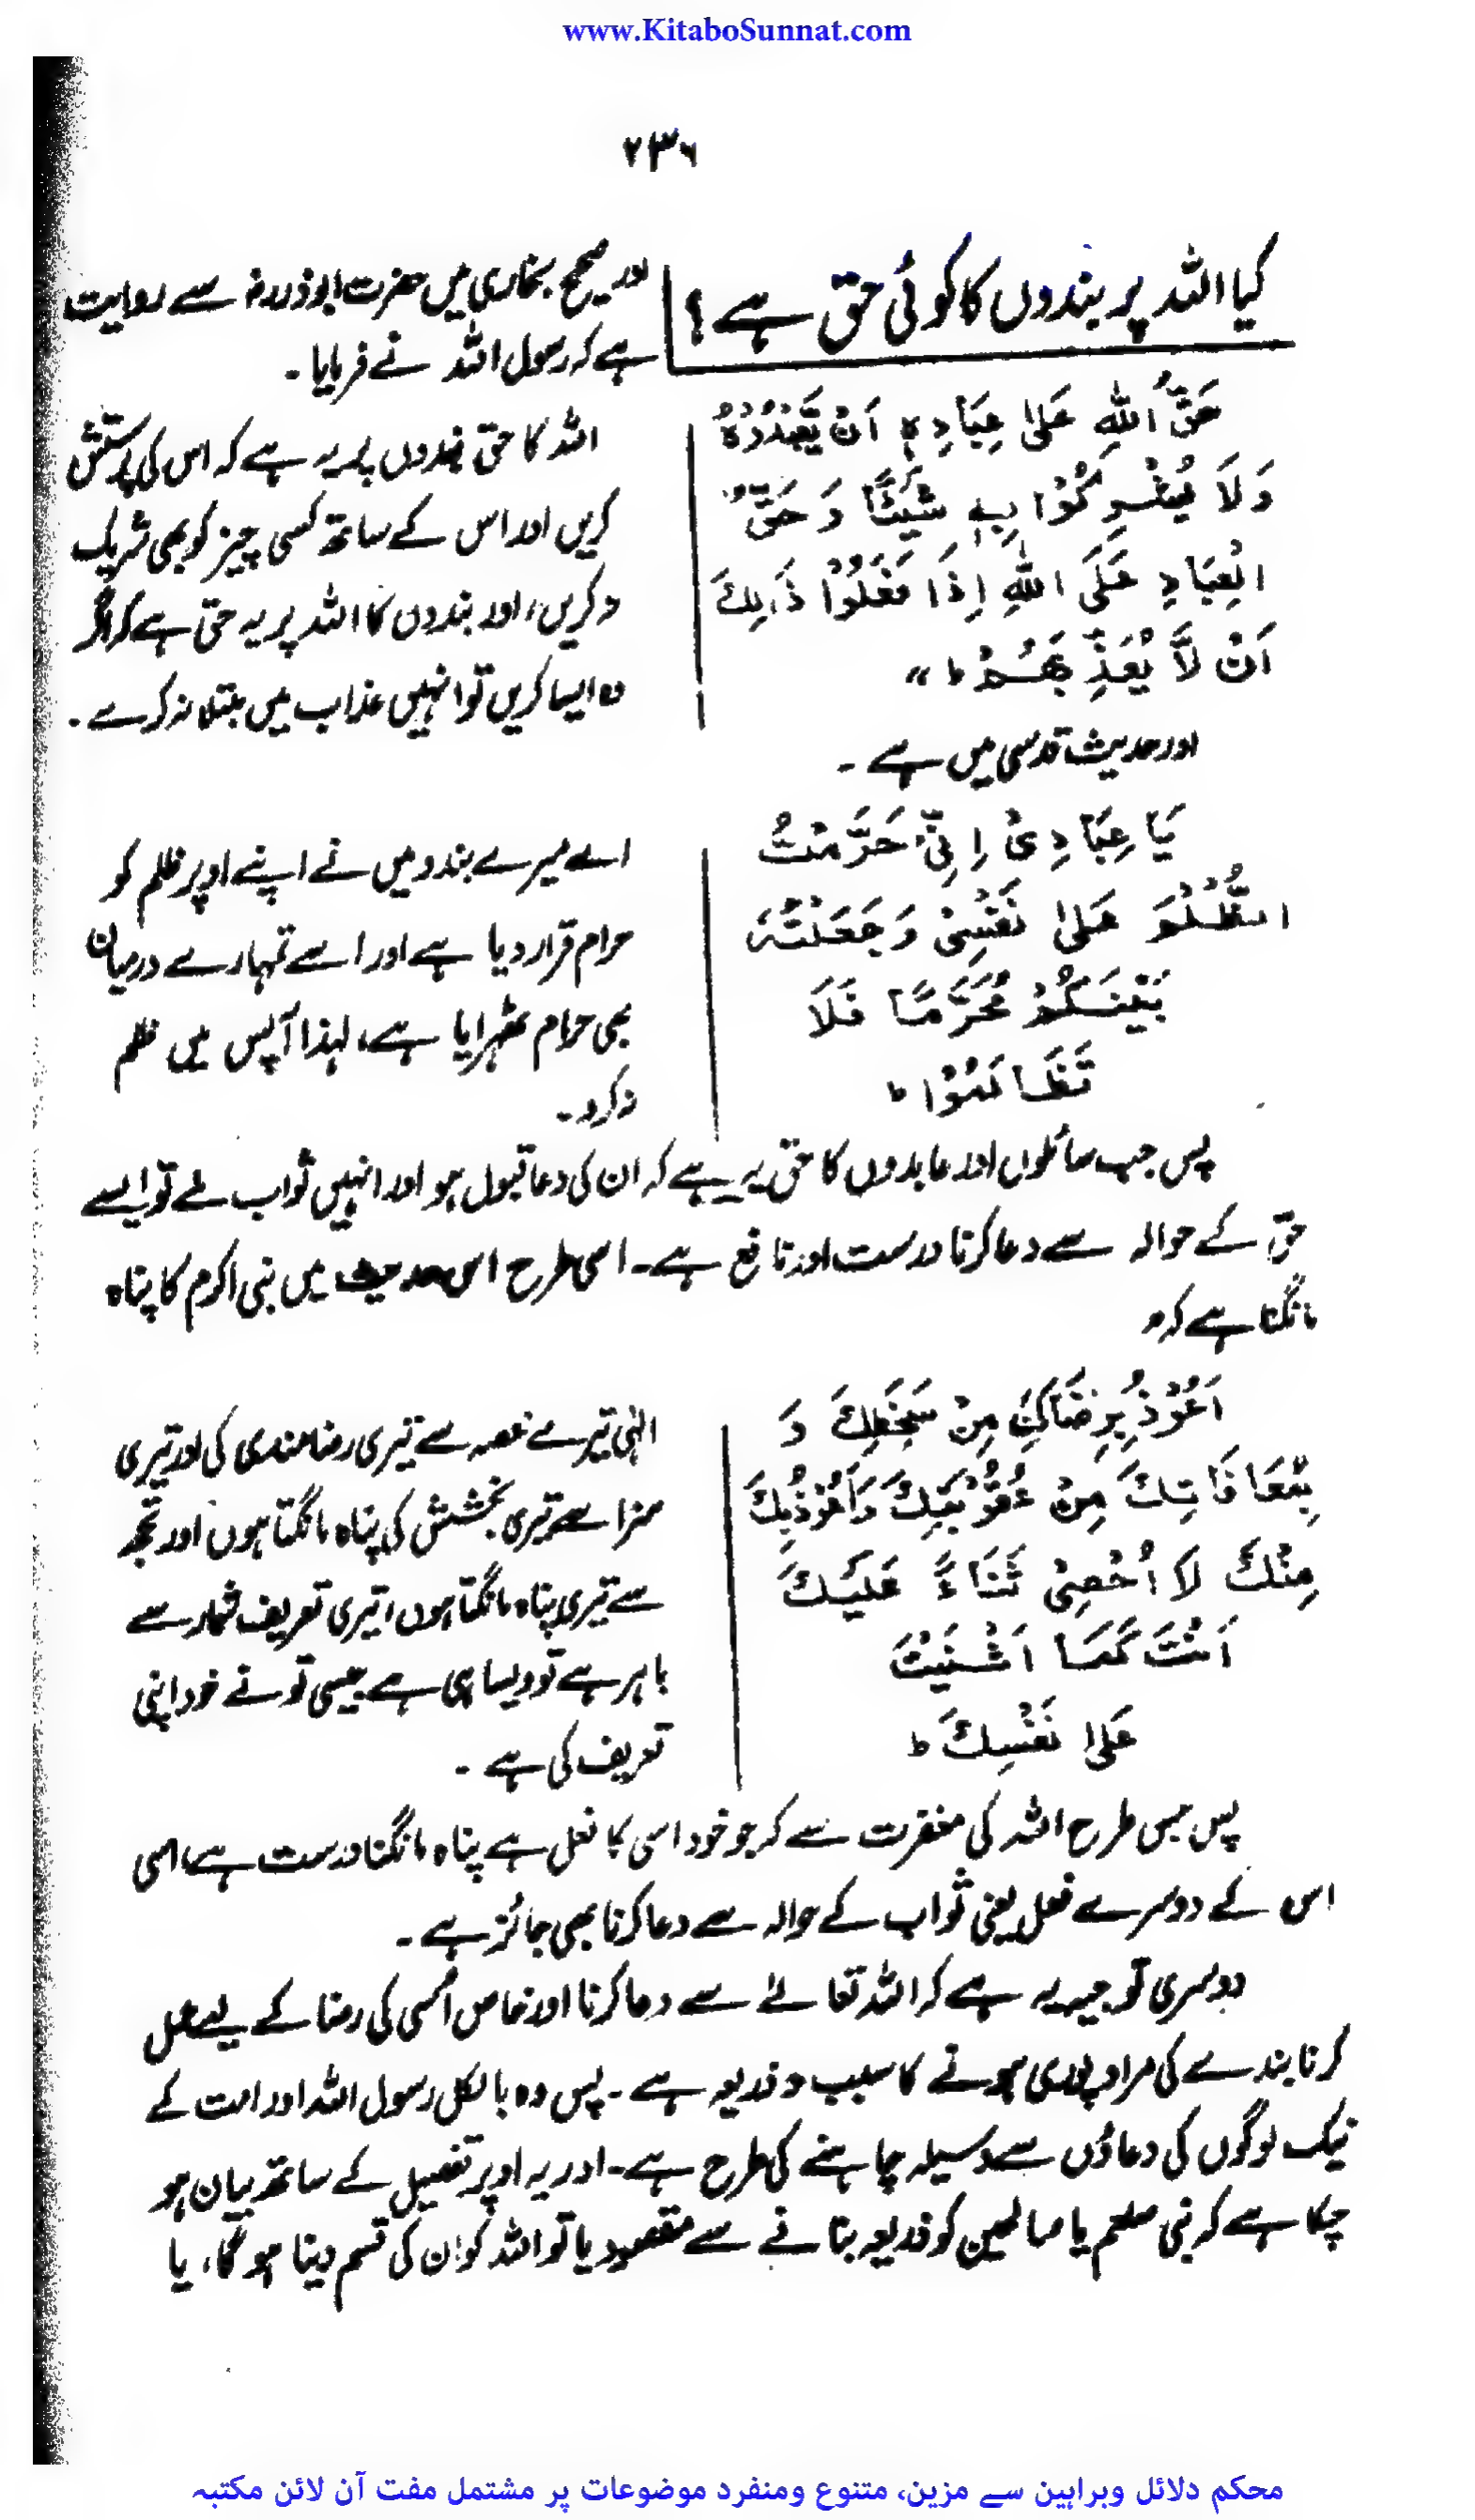 www.KitaboSunnat.com
۲۳۶
کیا اللہ پر بندوں کا کوئی حق ہے؟
اور صحیح بخاری میں حضرت ابوذررضہ سے روایت
ہے کہ رسول اللہ نے فرمایا۔
حَقُّ اللّٰہِ عَلٰی عِبَادِہٖ اَنْ یَّعْبُدُوْہُ
وَلَا یُشْرِکُوْا بِہٖ شَیْئًا وَ حَقُّ
الْعِبَادِ عَلَی اللّٰہِ اِذَا فَعَلُوْا ذَالِکَ
اَنْ لَّا یُعَذِّبَھُمْ ط"
اللہ کا حق بندوں پر یہ ہے کہ اس کی پرستش
کریں اور اس کے ساتھ کسی چیز کو بھی شریک
نہ کریں، اور بندوں کا اللہ پر یہ حق ہے کہ اگر
وہ ایسا کریں تو انہیں عذاب میں مبتلا نہ کرے۔
اور حدیث قدسی میں ہے۔
یَا عِبَادِیْ اِنِّیْ حَرَّمْتُ
الظُّلْمَ عَلٰی نَفْسِیْ وَجَعَلْتُہٗ
بَیْنَکُمْ مُحَرَّمًا فَلَا
تَظَالَمُوْا ط
اے میرے بندو میں نے اپنے اوپر ظلم کو
حرام قرار دیا ہے اور اسے تمہارے درمیان
بھی حرام ٹھہرایا ہے، لہذا آپس میں ظلم
نہ کرو۔
پس جب سائلوں اور عابدوں کا حق یہ ہے کہ ان کی دعا قبول ہو اور انہیں ثواب ملے تو ایسے
حق کے حوالہ سے دعا کرنا درست اور نافع ہے۔ اسی طرح اس حدیث میں نبی اکرم کا پناہ
مانگنا ہے کہ
اَعُوْذُ بِرِضَاکَ مِنْ سَخَطِکَ وَ
بِمُعَافَاتِکَ مِنْ عُقُوْبَتِکَ وَاَعُوْذُبِکَ
مِنْکَ لَا اُحْصِیْ ثَنَاءً عَلَیْکَ
اَنْتَ کَمَا اَثْنَیْتَ
عَلٰی نَفْسِکَ ط
الٰہی تیرے غصہ سے تیری رضامندی کی اور تیری
سزا سے تیری بخشش کی پناہ مانگتا ہوں اور تجھ
سے تیری پناہ مانگتا ہوں، تیری تعریف شمار سے
باہر ہے تو ویسا ہی ہے جیسی تو نے خود اپنی
تعریف کی ہے۔
پس جس طرح اللہ کی مغفرت سے کہ جو خود اسی کا فعل ہے پناہ مانگنا درست ہے، اسی
اس کے دوسرے فعل یعنی ثواب کے حوالہ سے دعا کرنا بھی جائز ہے۔
دوسری توجیہ یہ ہے کہ اللہ تعالےٰ سے دعا کرنا اور خاص اُسی کی رضا کے لیے عمل
کرنا بندے کی مراد پوری ہونے کا سبب و ذریعہ ہے۔ پس وہ بالکل رسول اللہ اور امت کے
نیک لوگوں کی دعاؤں سے وسیلہ چاہنے کی طرح ہے۔ اور یہ اوپر تفصیل کے ساتھ بیان ہو
چکا ہے کہ نبی صلعم یا صالحین کو ذریعہ بنانے سے مقصود یا تو اللہ کو ان کی قسم دینا ہو گا، یا
محکم دلائل وبراہین سے مزین، متنوع ومنفرد موضوعات پر مشتمل مفت آن لائن مکتبہ